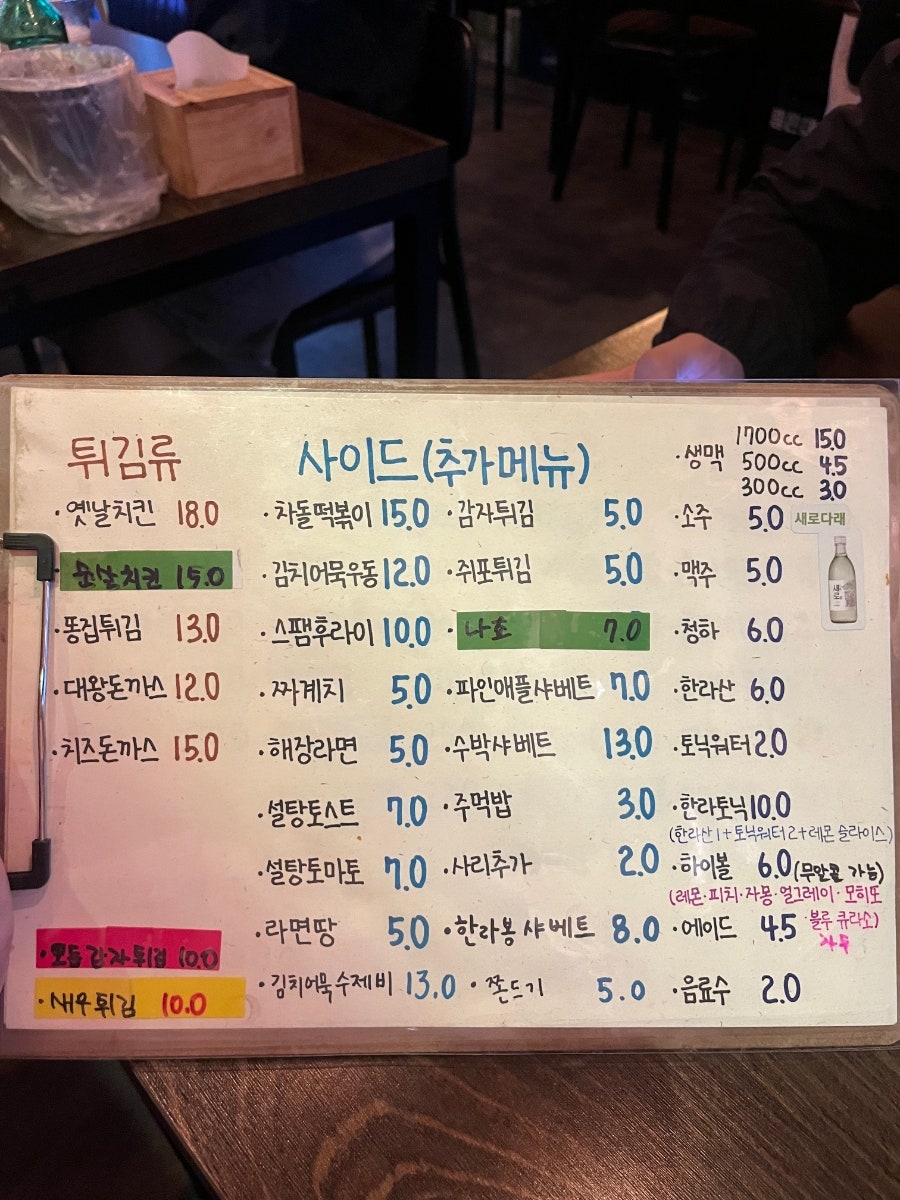 튀김류
·옛날치킨 18.0
순살치킨 15.0
·똥집튀김 13.0
·대왕돈까스 12.0
·치즈돈까스 15.0
·모듬감자튀김 10.0
·새우튀김 10.0
사이드(추가메뉴)
·차돌떡볶이 15.0
·김치어묵우동 12.0
·스팸후라이 10.0
·짜계치 5.0
·해장라면 5.0
·설탕토스트 7.0
·설탕토마토 7.0
·라면땅 5.0
·김치어묵수제비 13.0
·감자튀김 5.0
·쥐포튀김 5.0
·나쵸 7.0
·파인애플샤베트 7.0
·수박샤베트 13.0
·주먹밥 3.0
·사리추가 2.0
·한라봉샤베트 8.0
·쫀드기 5.0
·생맥 1700cc 15.0
500cc 4.5
300cc 3.0
·소주 5.0 새로다래
·맥주 5.0
새로
·청하 6.0
·한라산 6.0
·토닉워터 2.0
·한라토닉 10.0
(한라산 1+토닉워터 2+레몬 슬라이스)
·하이볼 6.0 (무알콜 가능)
(레몬·피치·자몽·얼그레이·모히또
·블루 큐라소)
·에이드 4.5
자두
·음료수 2.0